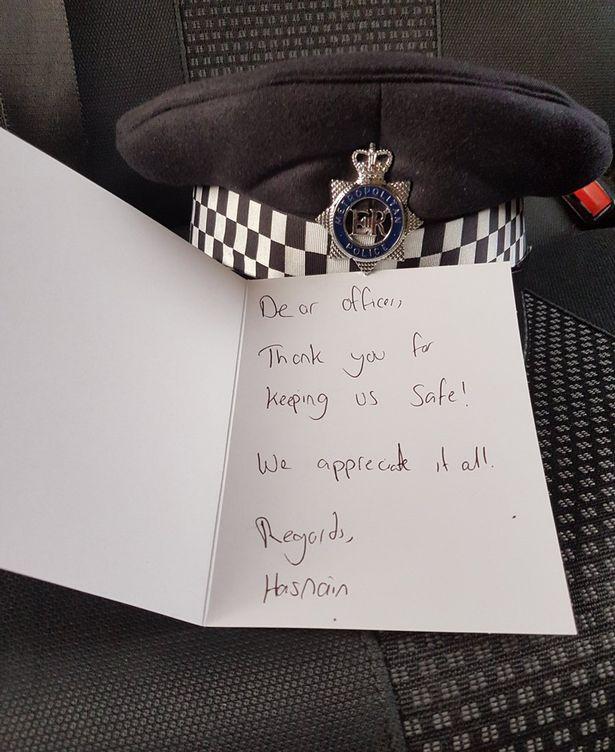 METROPOLITAN
EIIR
POLICE
Dear officers,
Thank you for
keeping us safe!
We appreciate it all.
Regards,
Hasnain